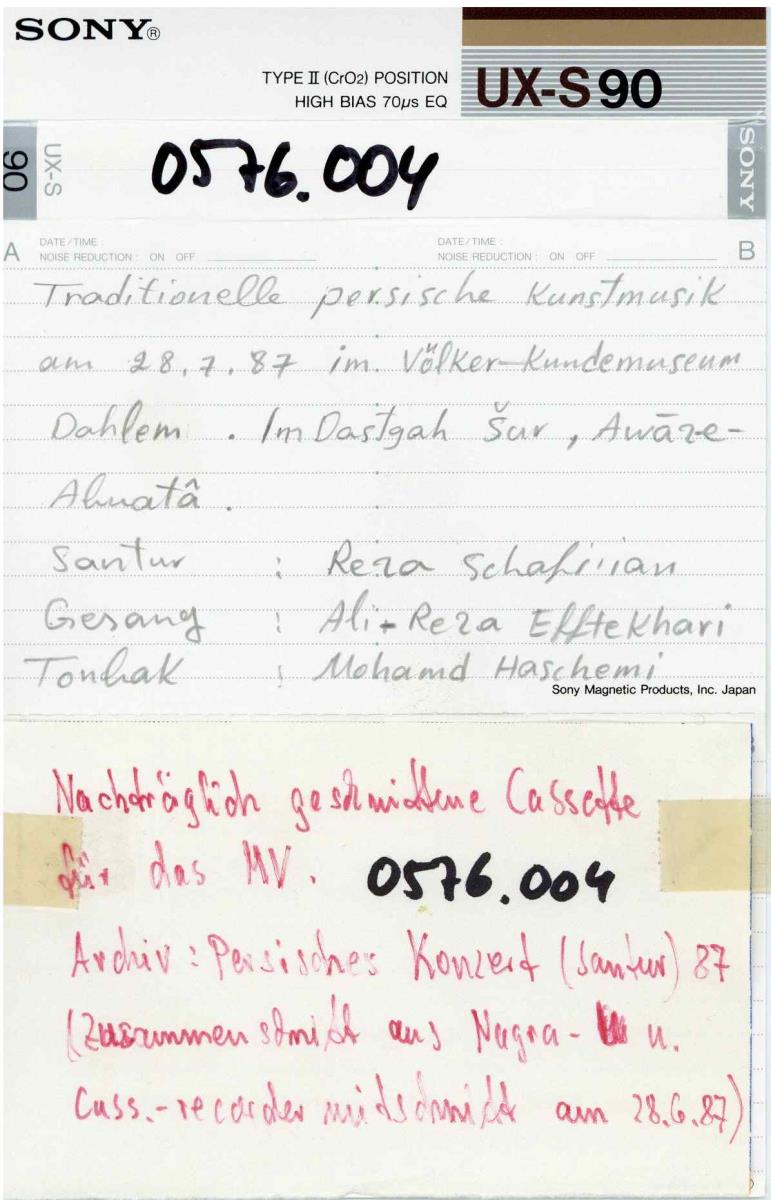 SONY®
TYPE II (CrO2) POSITION
HIGH BIAS 70µs EQ
UX-S 90
90
UX-S
0576.004
SONY
A DATE/TIME :
NOISE REDUCTION : ON OFF
DATE/TIME :
NOISE REDUCTION : ON OFF
B
Traditionelle persische Kunstmusik
am 28.7.87 im Völker-Kundemuseum
Dahlem . Im Dastgah Šur , Awāze-
Abuatâ .
Santur : Reza
Gesang : Ali-Reza Efftekhari
Tonbak : Mohamd Haschemi
Sony Magnetic Products, Inc. Japan
Nachträglich geschnittene Cassette
für das MV. 0576.004
Archiv : Persisches Konzert (Santur) 87
(Zusammenschnitt aus Nagra- u.
Cass.-recorder mitschnitt am 28.6.87)